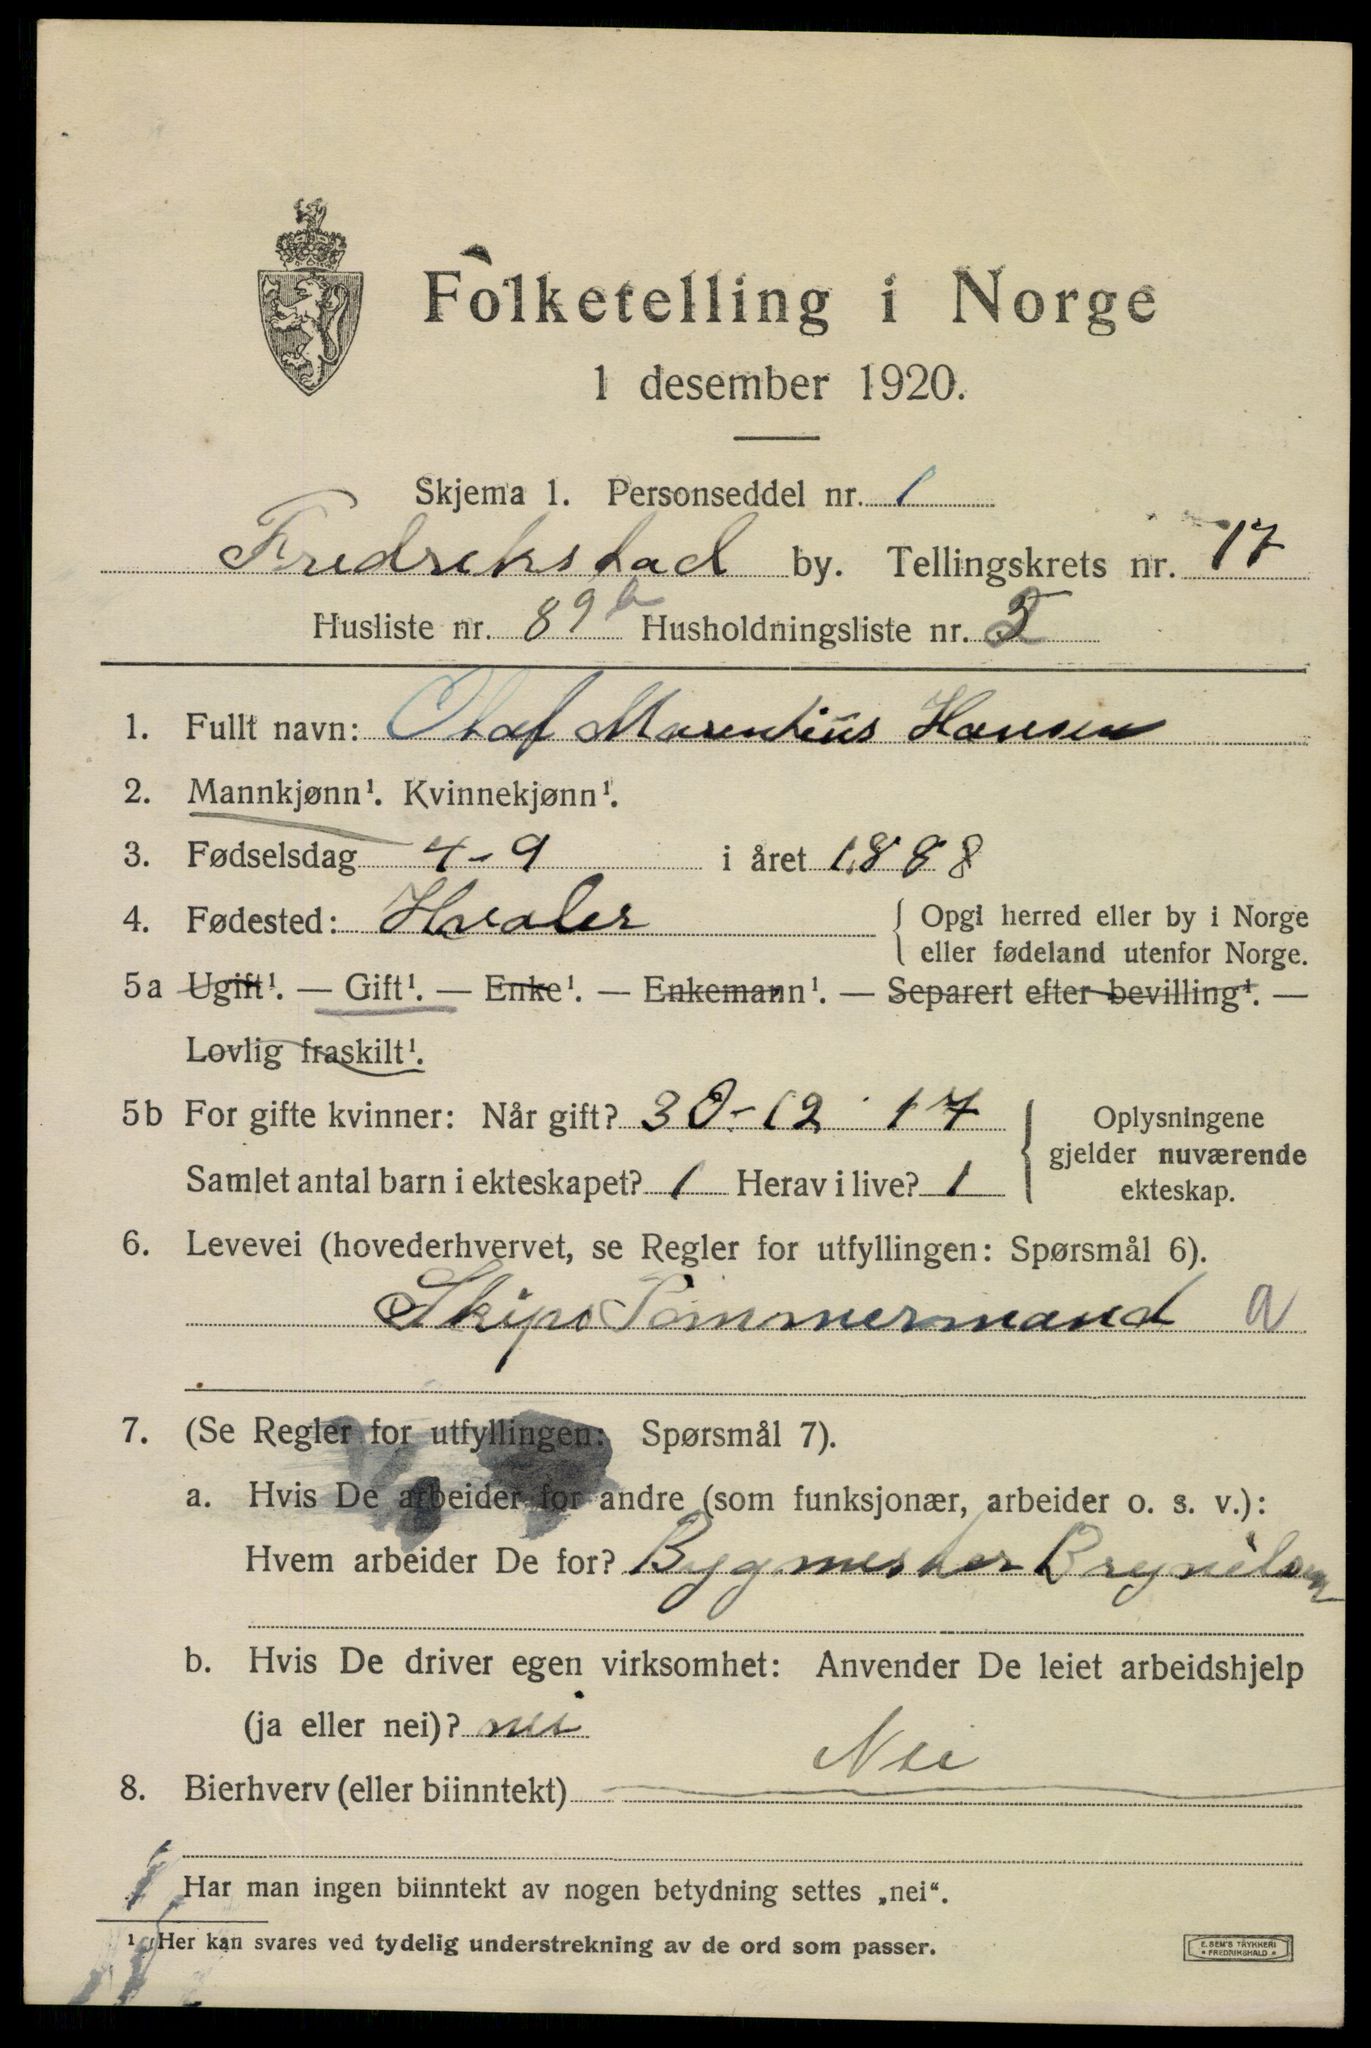 Folketelling i Norge
1 desember 1920.
Skjema 1. Personseddel nr. 1
Fredrikstad by. Tellingskrets nr. 17
Husliste nr. 89 b Husholdningsliste nr. 2
1. Fullt navn: Olaf Marentius Hansen
2. Mannkjønn¹. Kvinnekjønn¹.
3. Fødselsdag 4-9 i året 1888
4. Fødested: Hvaler { Opgi herred eller by i Norge
eller fødeland utenfor Norge.
5a Ugift¹. — Gift¹. — Enke¹. — Enkemann¹. — Separert efter bevilling¹. —
Lovlig fraskilt¹.
5b For gifte kvinner: Når gift? 30-12 17 { Oplysningene
gjelder nuværende
Samlet antal barn i ekteskapet? 1 Herav i live? 1 ekteskap.
6. Levevei (hovederhvervet, se Regler for utfyllingen: Spørsmål 6).
Skips Tømmermand a
7. (Se Regler for utfyllingen: Spørsmål 7).
a. Hvis De arbeider for andre (som funksjonær, arbeider o. s. v.):
Hvem arbeider De for? Bygmester Brynilsen
b. Hvis De driver egen virksomhet: Anvender De leiet arbeidshjelp
(ja eller nei)? nei
8. Bierhverv (eller biinntekt) Nei
Har man ingen biinntekt av nogen betydning settes „nei“.
¹ Her kan svares ved tydelig understrekning av de ord som passer.
E. SEM'S TRYKKERI
FREDRIKSHALD